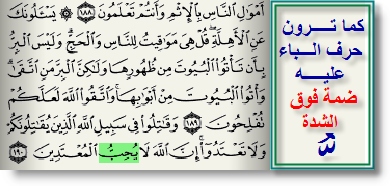 أَمْوَالِ النَّاسِ بِالْإِثْمِ وَأَنتُمْ تَعْلَمُونَ ١٨٨ ۞ يَسْـَٔلُونَكَ
عَنِ الْأَهِلَّةِ ۖ قُلْ هِيَ مَوَاقِيتُ لِلنَّاسِ وَالْحَجِّ ۗ وَلَيْسَ الْبِرُّ
بِأَن تَأْتُوا الْبُيُوتَ مِن ظُهُورِهَا وَلَٰكِنَّ الْبِرَّ مَنِ اتَّقَىٰ ۗ
وَأْتُوا الْبُيُوتَ مِنْ أَبْوَابِهَا ۚ وَاتَّقُوا اللَّهَ لَعَلَّكُمْ
تُفْلِحُونَ ١٨٩ وَقَاتِلُوا فِي سَبِيلِ اللَّهِ الَّذِينَ يُقَاتِلُونَكُمْ
وَلَا تَعْتَدُوا ۚ إِنَّ اللَّهَ لَا يُحِبُّ الْمُعْتَدِينَ ١٩٠
كما تـــرون
حرف البـــاء
عليـــه
ضمة فوق
الشدة